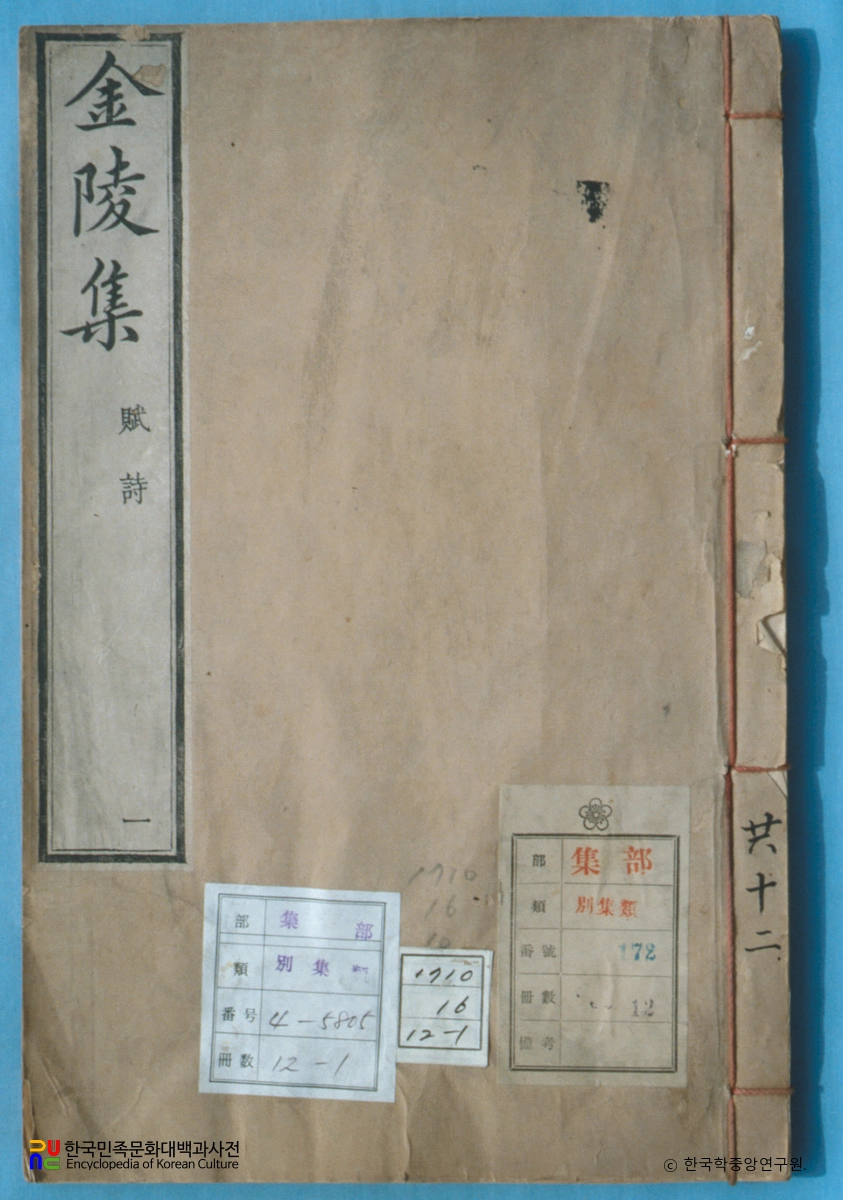 金陵集
賦詩
一
共十二
部 集部
類 別集類
番號 172
冊數 12
備考
部 集部
類 別集類
番号 4-5805
冊数 12-1
1710
16
12-1
1710
16
한국민족문화대백과사전
Encyclopedia of Korean Culture
© 한국학중앙연구원.